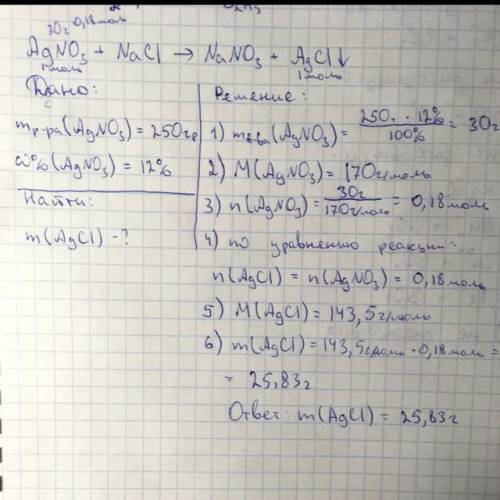 30г 0,18моль
AgNO₃ + NaCl → NaNO₃ + AgCl↓
1моль 1моль
Дано:
mр-ра(AgNO₃) = 250г
ω%(AgNO₃) = 12%
Найти:
m(AgCl) - ?
Решение:
1) mв-ва(AgNO₃) = 250г · 12% / 100% = 30г
2) M(AgNO₃) = 170г/моль
3) n(AgNO₃) = 30г / 170г/моль = 0,18моль
4) по уравнению реакции:
n(AgCl) = n(AgNO₃) = 0,18моль
5) M(AgCl) = 143,5г/моль
6) m(AgCl) = 143,5г/моль · 0,18моль =
= 25,83г
Ответ: m(AgCl) = 25,83г